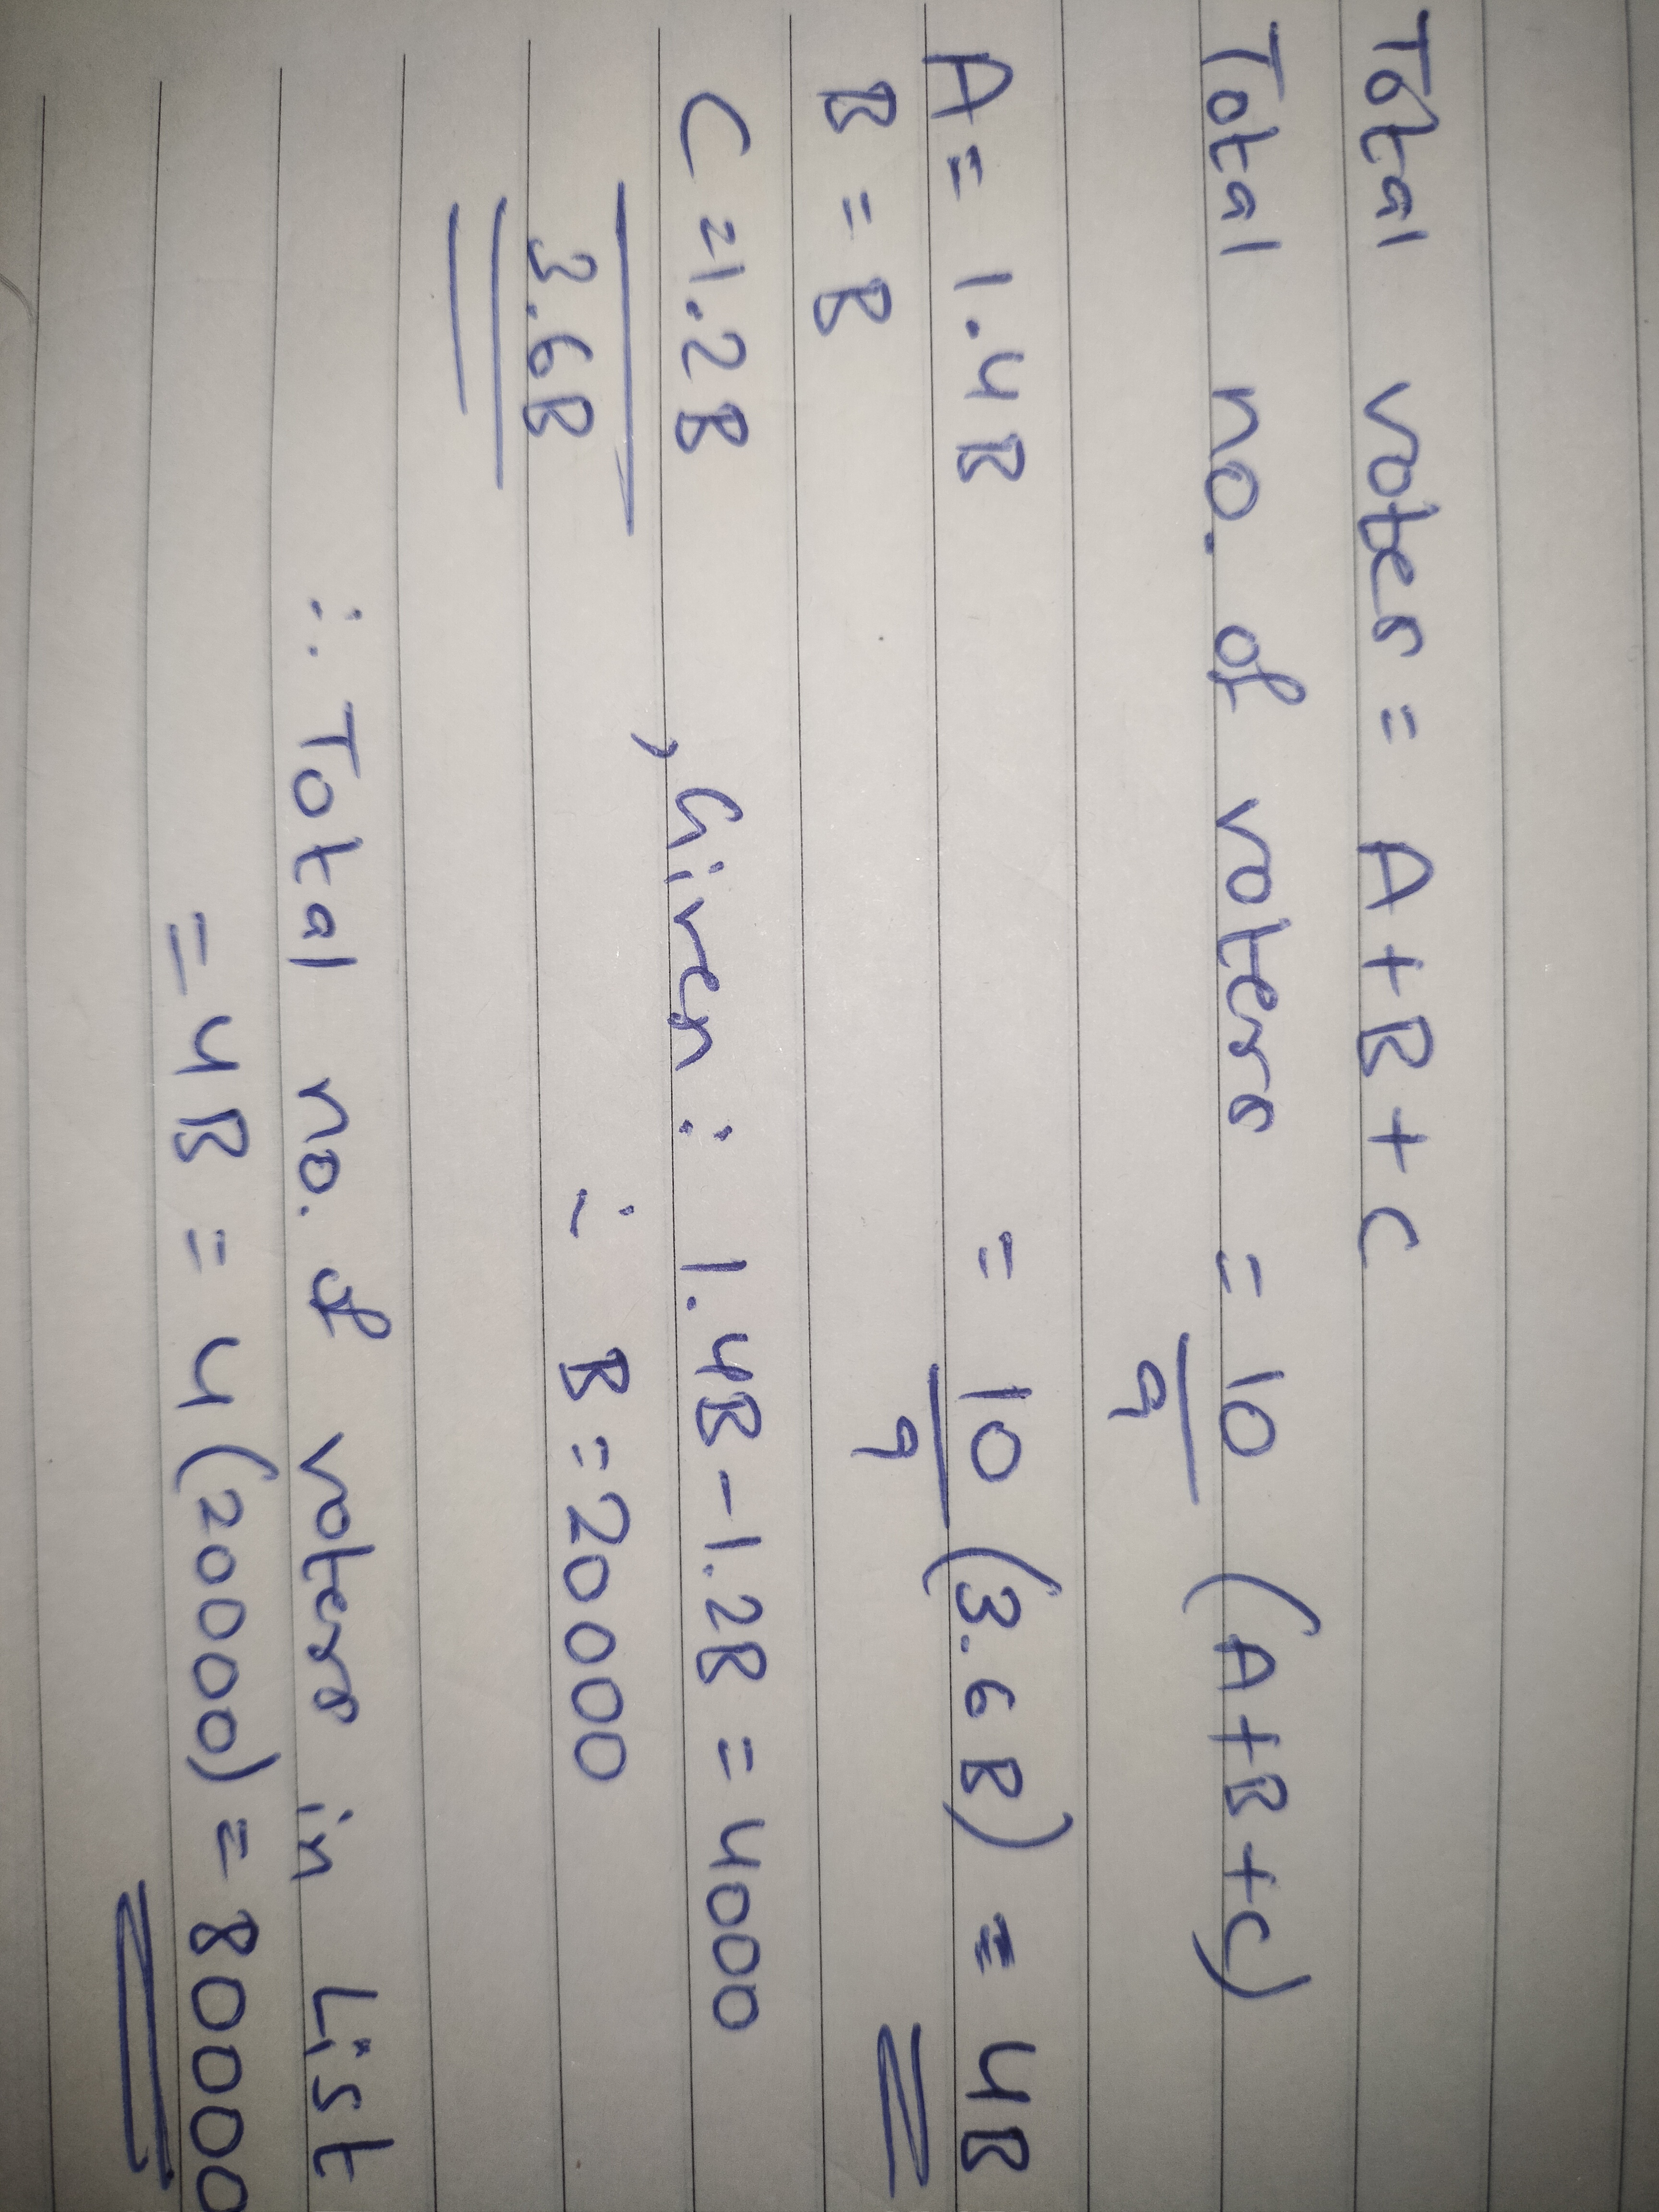 Total voter = A+B+C
Total no. of voters = 10/9 (A+B+C)
A = 1.4B = 10/9 (3.6B) = 4B
B = B
C = 1.2B , Given : 1.4B - 1.2B = 4000
3.6B ∴ B = 20000
∴ Total no. of voters in List
= 4B = 4(20000) = 80000